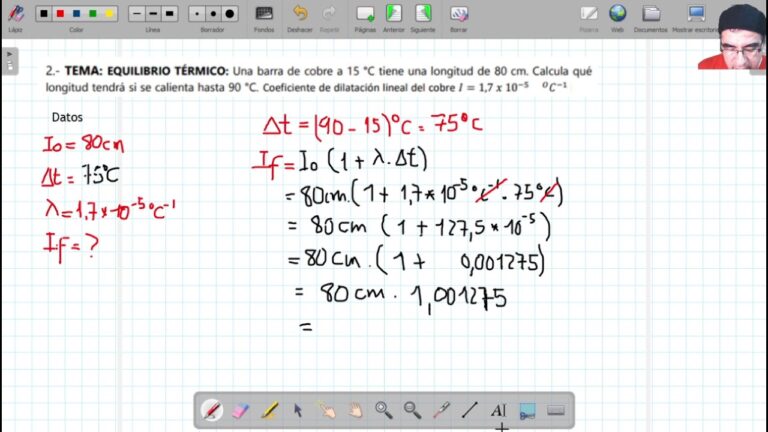 Lápiz Color Línea Borrador Fondos Deshacer Repetir Páginas Anterior Siguiente Borrar Pizarra Web Documentos Mostrar escritorio
2.- TEMA: EQUILIBRIO TÉRMICO: Una barra de cobre a 15 °C tiene una longitud de 80 cm. Calcula qué
longitud tendrá si se calienta hasta 90 °C. Coeficiente de dilatación lineal del cobre l = 1,7 x 10⁻⁵ ⁰C⁻¹
Datos
Io = 80cm
Δt = 75°C
λ = 1.7*10⁻⁵°C⁻¹
If = ?
Δt = (90 - 15)°C = 75°C
If = Io (1 + λ.Δt)
= 80cm.(1 + 1,7*10⁻⁵°C⁻¹ . 75°C)
= 80cm (1 + 127,5*10⁻⁵)
= 80cm . (1 + 0,001275)
= 80cm . 1,001275
=
AI